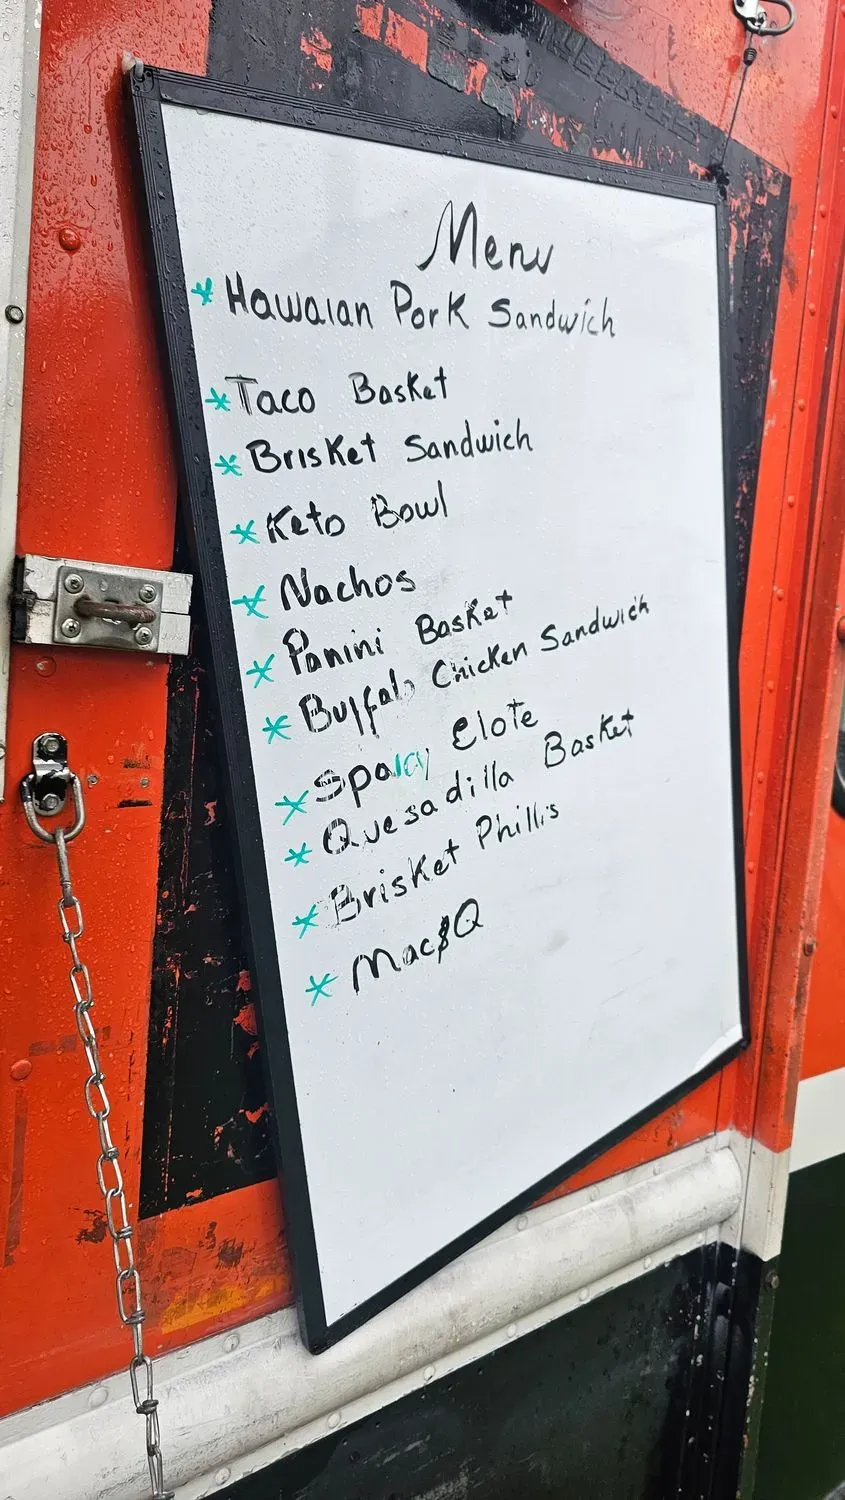 Menu
* Hawaian Pork Sandwich
* Taco Basket
* Brisket Sandwich
* Keto Bowl
* Nachos
* Panini Basket
* Buffalo Chicken Sandwich
* Spaicy Elote
* Quesadilla Basket
* Brisket Phillis
* Mac&Q